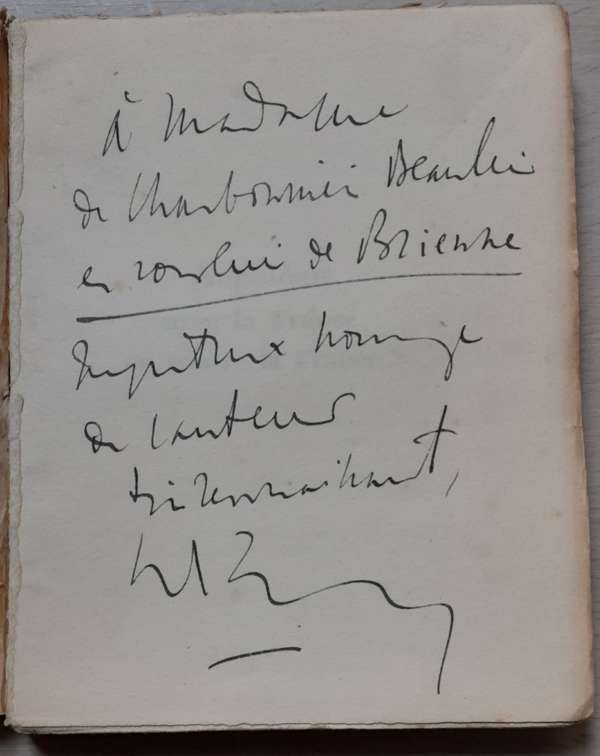 à Madame
de Charbonnier Beaulieu
en souvenir de Brienne
respectueux hommage
de l'auteur
très reconnaissant,